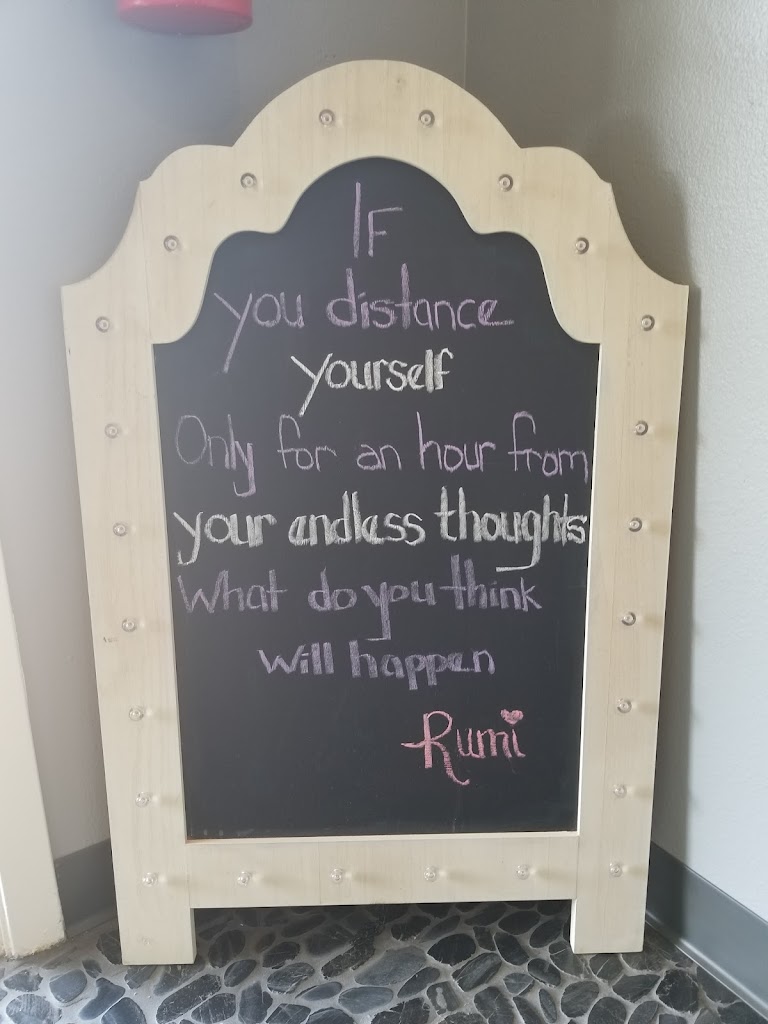 IF
you distance
yourself
Only for an hour from
your endless thoughts
What do you think
will happen
Rumi